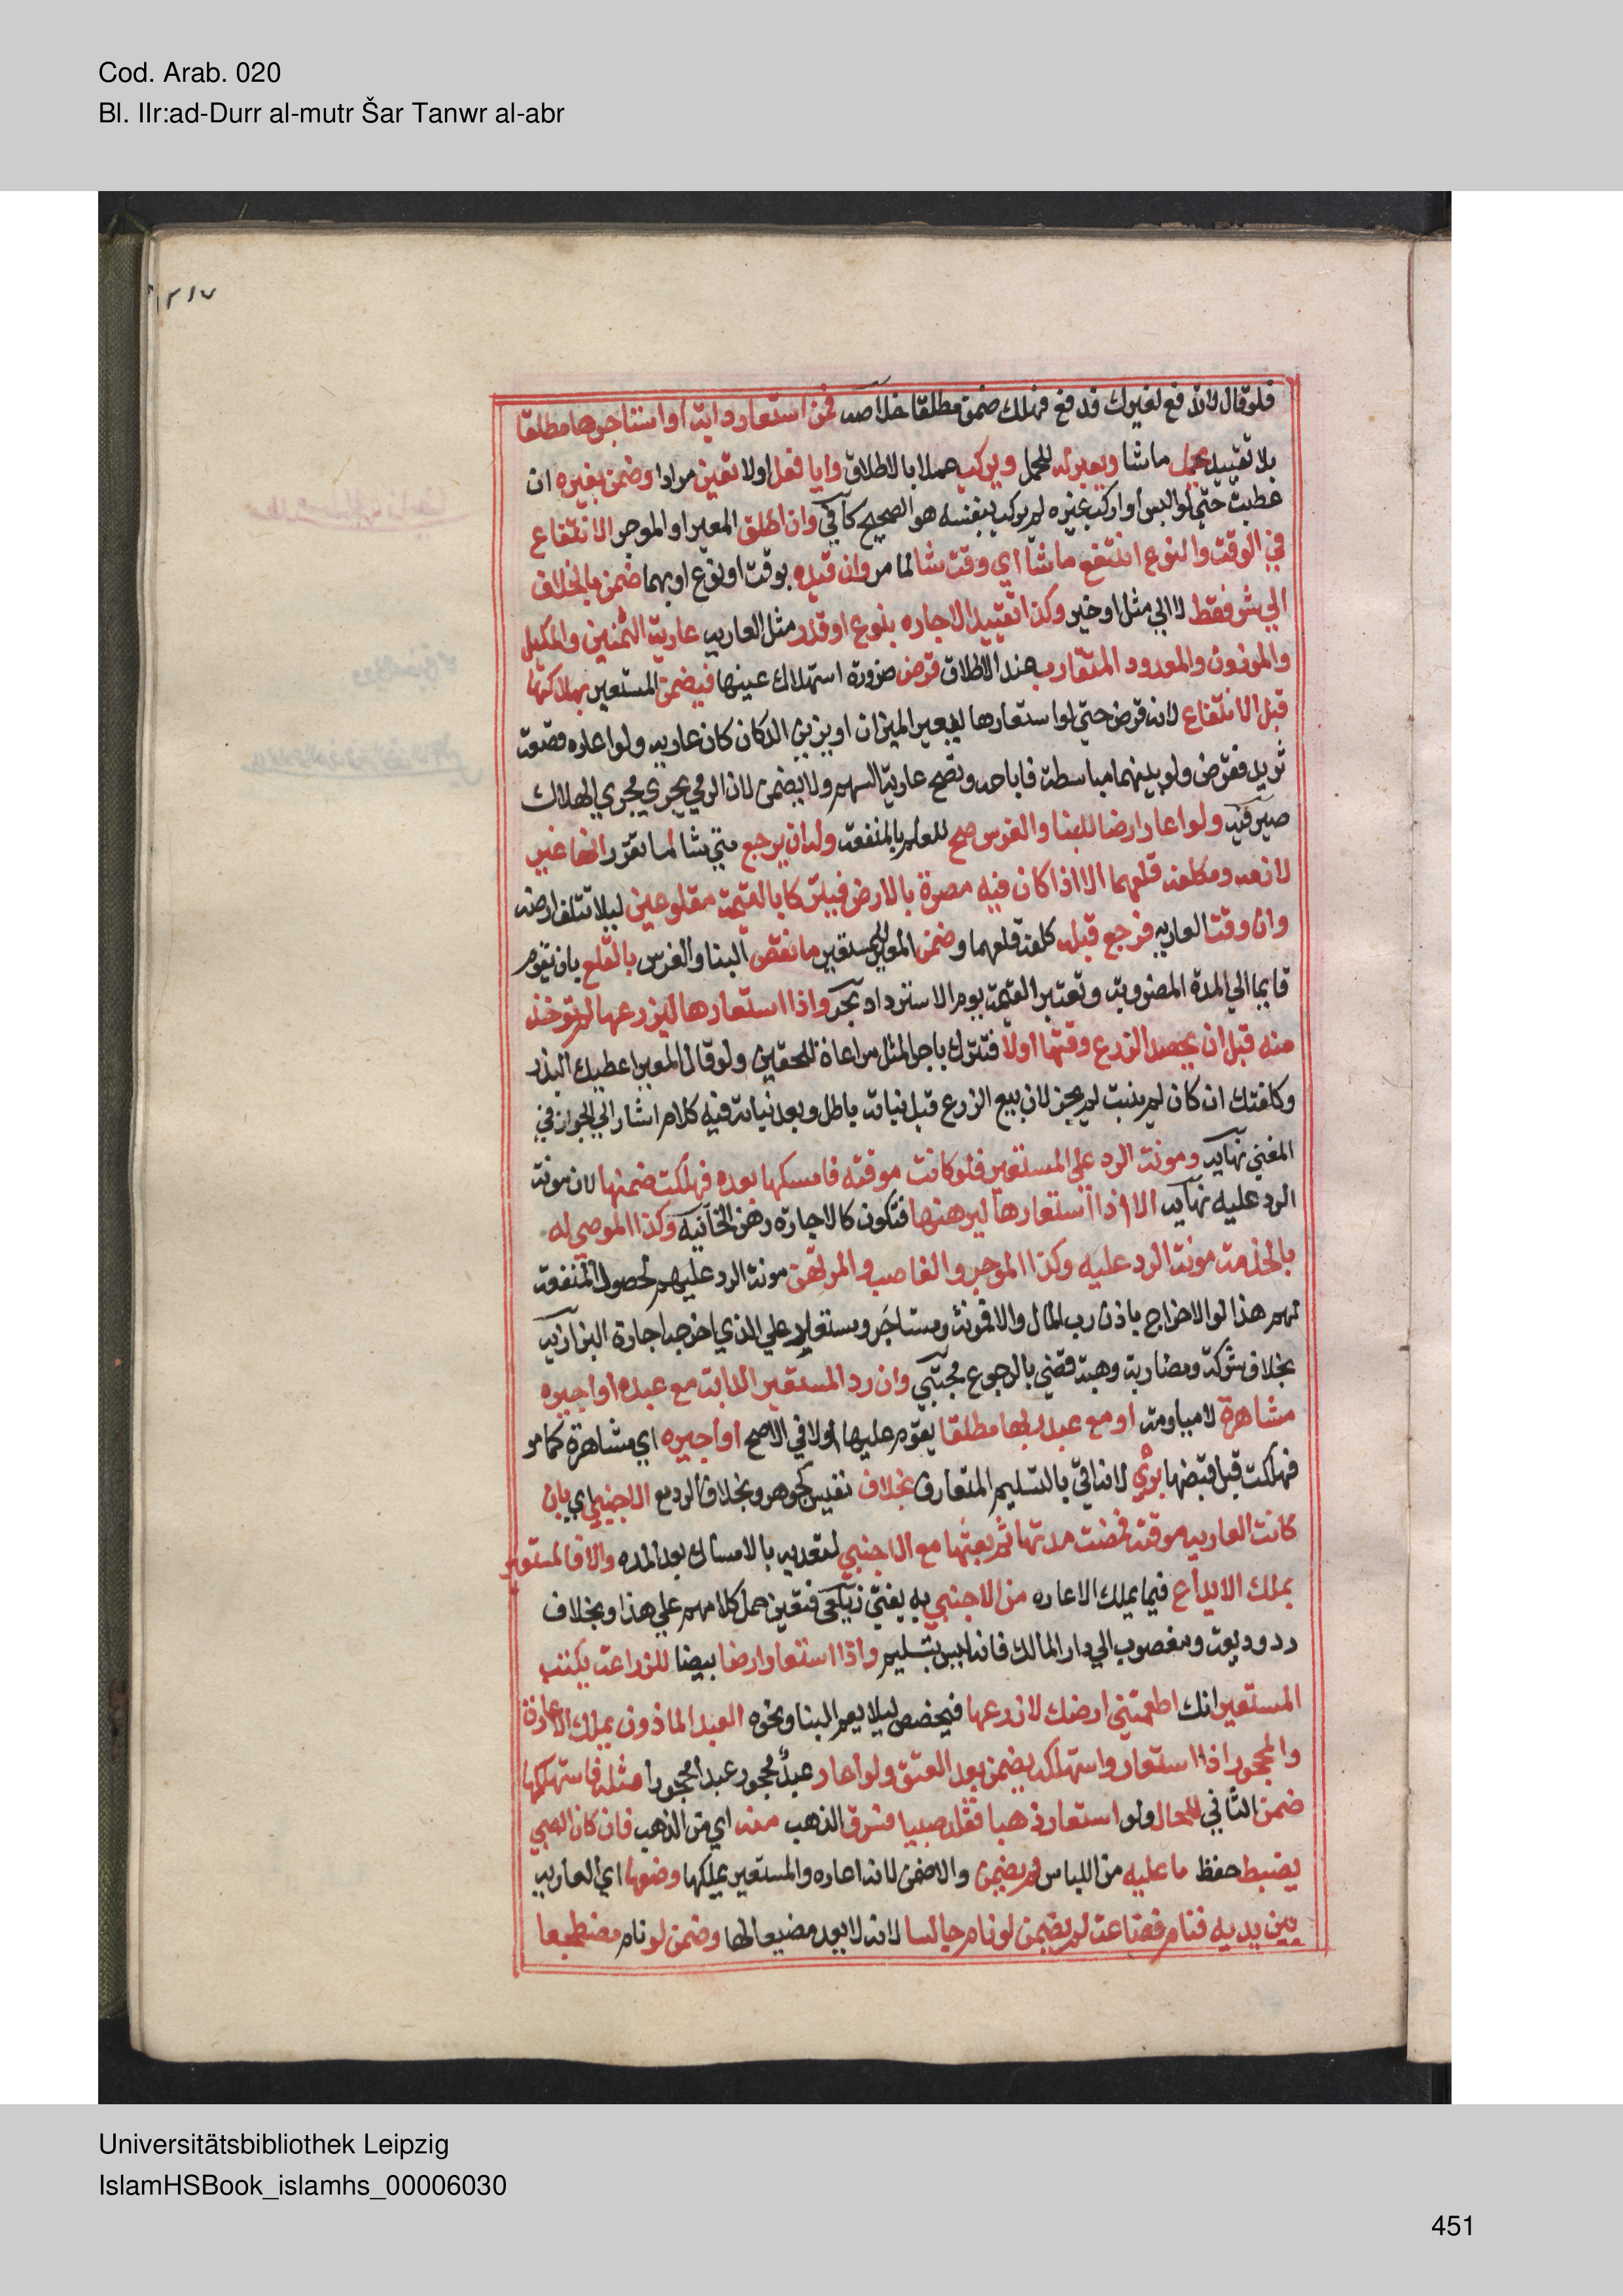 Cod. Arab. 020
Bl. IIr:ad-Durr al-mutr Šar Tanwr al-abr
٢١٧
فلو قال لا تدفع لغيرك فدفع فهلك ضمن مطلقا خلاصه فمن استعار دابة او استاجرها مطلقا
بلا تقييد يحمل ما شا ويعير له للحمل ويركب عملا بالاطلاق وايا فعل اولا تعين مرادا وضمن بغيره ان
عطبت حتي لو البس او اركب غيره لم يركب بنفسه هو الصحيح كافي وان اطلق المعير او الموجر الانتفاع
في الوقت والنوع انتفع ما شا اي وقت شا لما مر وان قيده بوقت او نوع او بهما ضمن بالخلاف
الي شر فقط لا الي مثل او خير وكذا تقييد الاجاره بنوع او قدر مثل العاريه عارية الثمنين والمكيل
والموزون والمعدود المتقارب عند الاطلاق قرض ضرورة استهلاك عينها فيضمن المستعير بهلاكها
قبل الانتفاع لانه قرض حتي لو استعارها ليعير الميزان او يزين الدكان كان عاريه ولو اعاره قصعة
ثريد فقرض ولو بينهما مباسطة فاباحه وتصح عارية السهم ولا يضمن لان الرمي يجري مجري الهلاك
صيرفيه ولو اعار ارضا للبنا والغرس صح للعلم بالمنفعة وله ان يرجع متي شا لما تقرر انها غير
لازمه ويكلفه قلعهما الا اذا كان فيه مضرة بالارض فيتركا بالقيمة مقلوعين ليلا تتلف ارضه
وان وقت العاريه فرجع قبله كلفه قلعهما وضمن المعير للمستعير ما نقص البنا والغرس بالقلع بان يقوم
قايما الي المدة المضروبة وتعتبر القيمة يوم الاسترداد بحر واذا استعارها ليزرعها لم توخذ
منه قبل ان يحصد الزرع وقتها اولا فتترك باجر المثل مراعاة للحقين ولو قال المعير اعطيك البذر
وكلفتك ان كان لم ينبت لم يجز لان بيع الزرع قبل نباته باطل وبعد نباته فيه كلام اشار الي الجواز في
المغني نهايه ومونة الرد علي المستعير فلو كانت موقته فامسكها بعده فهلكت ضمنها لان مونة
الرد عليه نهايه الا اذا استعارها ليرهنها فتكون كالاجاره رهن الخانيه وكذا الموصي له
بالخذمة مونة الرد عليه وكذا الموجر والغاصب والمرتهن مونة الرد عليهم لحصول المنفعة
لهم هذا لو الاخراج باذن رب المال والا فمونة مستاجر ومستعير علي الذي اخرجه اجارة البزازيه
بخلاف شركة ومضاربة وهبة قضي بالرجوع مجتبي وان رد المستعير الدابة مع عبده او اجيره
مشاهرة لا مياومة او مع عبد ربها مطلقا يقوم عليها اولا في الاصح او اجيره اي مشاهرة كما مر
فهلكت قبل قبضها بري لانه اتي بالتسليم المتعارف بخلاف نفيس كجوهر وبخلاف الرد مع الاجنبي اي بان
كانت العاريه موقتة فمضت مدتها ثم بعثها مع الاجنبي لتعديه بالامساك بعد المده والا فالمستعير
يملك الايداع فيما يملك الاعاره من الاجنبي به يفتي زيلعي فتعين حمل كلامهم علي هذا وبخلاف
رد وديعة ومغصوب الي دار المالك فانه ليس بتسليم واذا استعار ارضا بيضا للزراعة يكتب
المستعير انك اطعمتني ارضك لازرعها فيخصص ليلا يعم البنا ونحوه العبد الماذون يملك الاعارة
والمحجور اذا استعار واستهلكه يضمن بعد العتق ولو اعار عبد محجور عبدا محجورا مثله فاستهلكها
ضمن الثاني للحال ولو استعار ذهبا فقلد صبيا فسرق الذهب منه اي من الذهب فان كان الصبي
يضبط حفظ ما عليه من اللباس لم يضمن والا ضمن لانه اعاره والمستعير يملكها وضعها اي العاريه
بين يديه فنام فضاعت لم يضمن لو نام جالسا لانه لا يعد مضيعا لها وضمن لو نام مضطجعا
Universitätsbibliothek Leipzig
IslamHSBook_islamhs_00006030
451